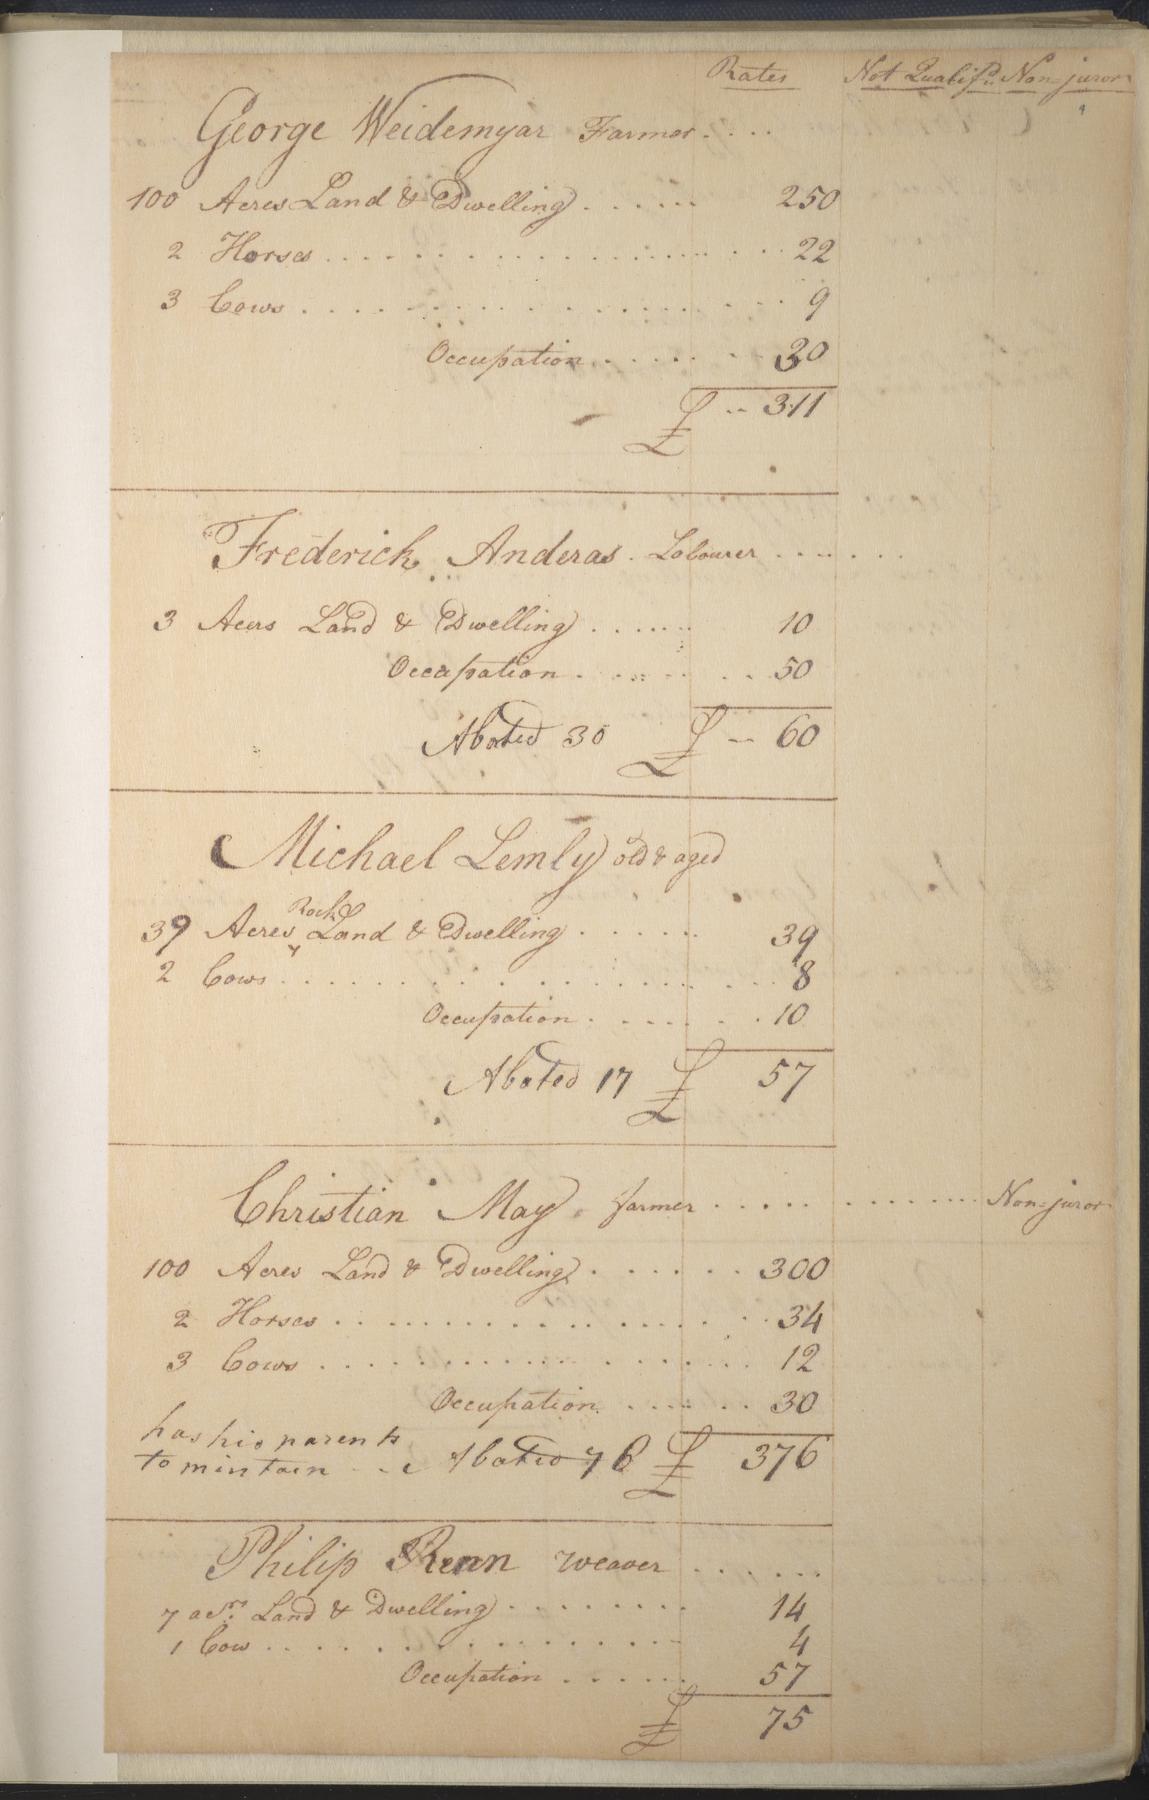 Rates Not Qualifd. Non=juror
George Weidemyar Farmer....
100 Acres Land & Dwelling...... 250
2 Horses........ 22
3 Cows........ 9
Occupation...... 30
£ -- 311
Frederick Anderas. Labourer.......
3 Acers Land & Dwelling...... 10
Occapation....... 50
Abated 30 £ -- 60
Michael Lemly old & aged
Rock
39 Acres Land & Dwelling...... 39
2 Cows........ 8
Occupation...... 10
Abated 17 £ 57
Christian May. farmer........ Non=juror
100 Acres Land & Dwelling...... 300
2 Horses........ 34
3 Cows........ 12
Occupation...... 30
has his parents
to mintain -- Abated 76 £ 376
Philip Renn weaver......
7 acrs. Land & Dwelling........ 14
1 Cow........ 4
Occupation...... 57
£ 75